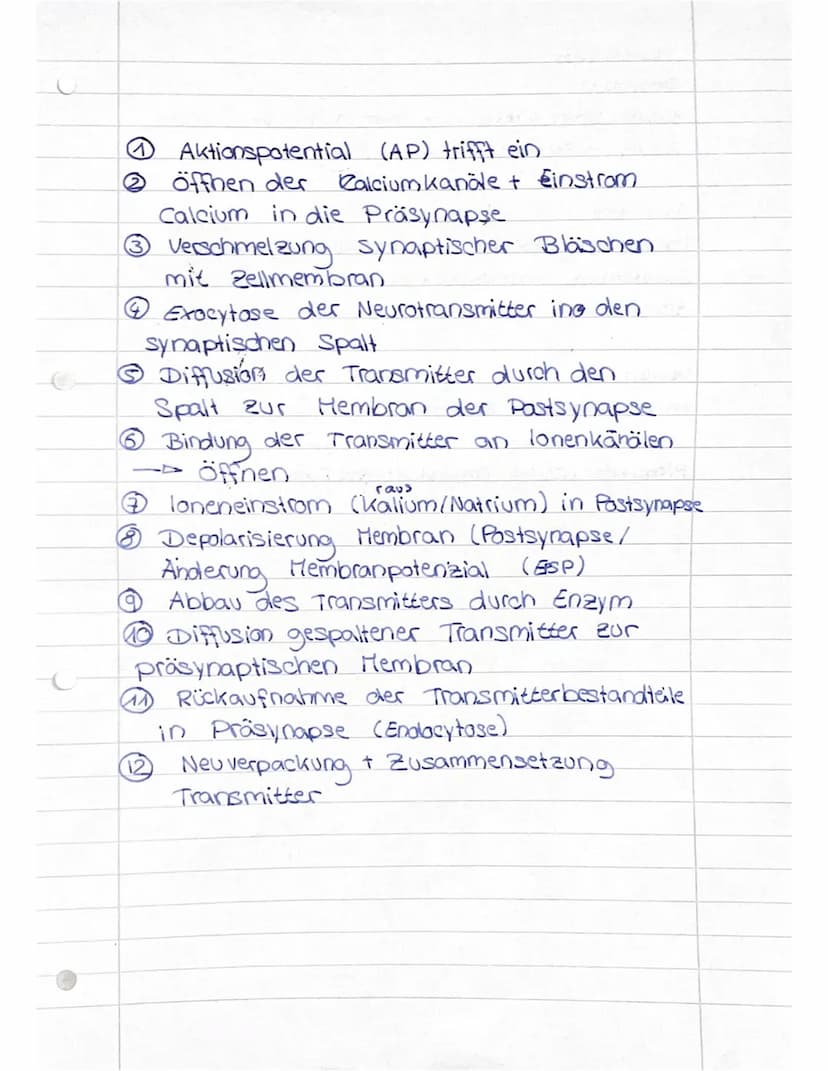 ① Aktionspotential (AP) trifft ein
② Öffnen der Calciumkanäle + Einstrom
Calcium in die Präsynapse
③ Verschmelzung synaptischer Bläschen
mit Zellmembran
④ Exocytose der Neurotransmitter in den
synaptischen Spalt
⑤ Diffusion der Transmitter durch den
Spalt zur Membran der Postsynapse
⑥ Bindung der Transmitter an Ionenkanälen
→ Öffnen
raus
⑦ Ioneneinstrom (Kalium/Natrium) in Postsynapse
⑧ Depolarisierung Membran (Postsynapse/
Änderung Membranpotenzial (PSP)
⑨ Abbau des Transmitters durch Enzym
⑩ Diffusion gespaltener Transmitter zur
präsynaptischen Membran
⑪ Rückaufnahme der Transmitterbestandteile
in Präsynapse (Endocytose)
⑫ Neuverpackung + Zusammensetzung
Transmitter